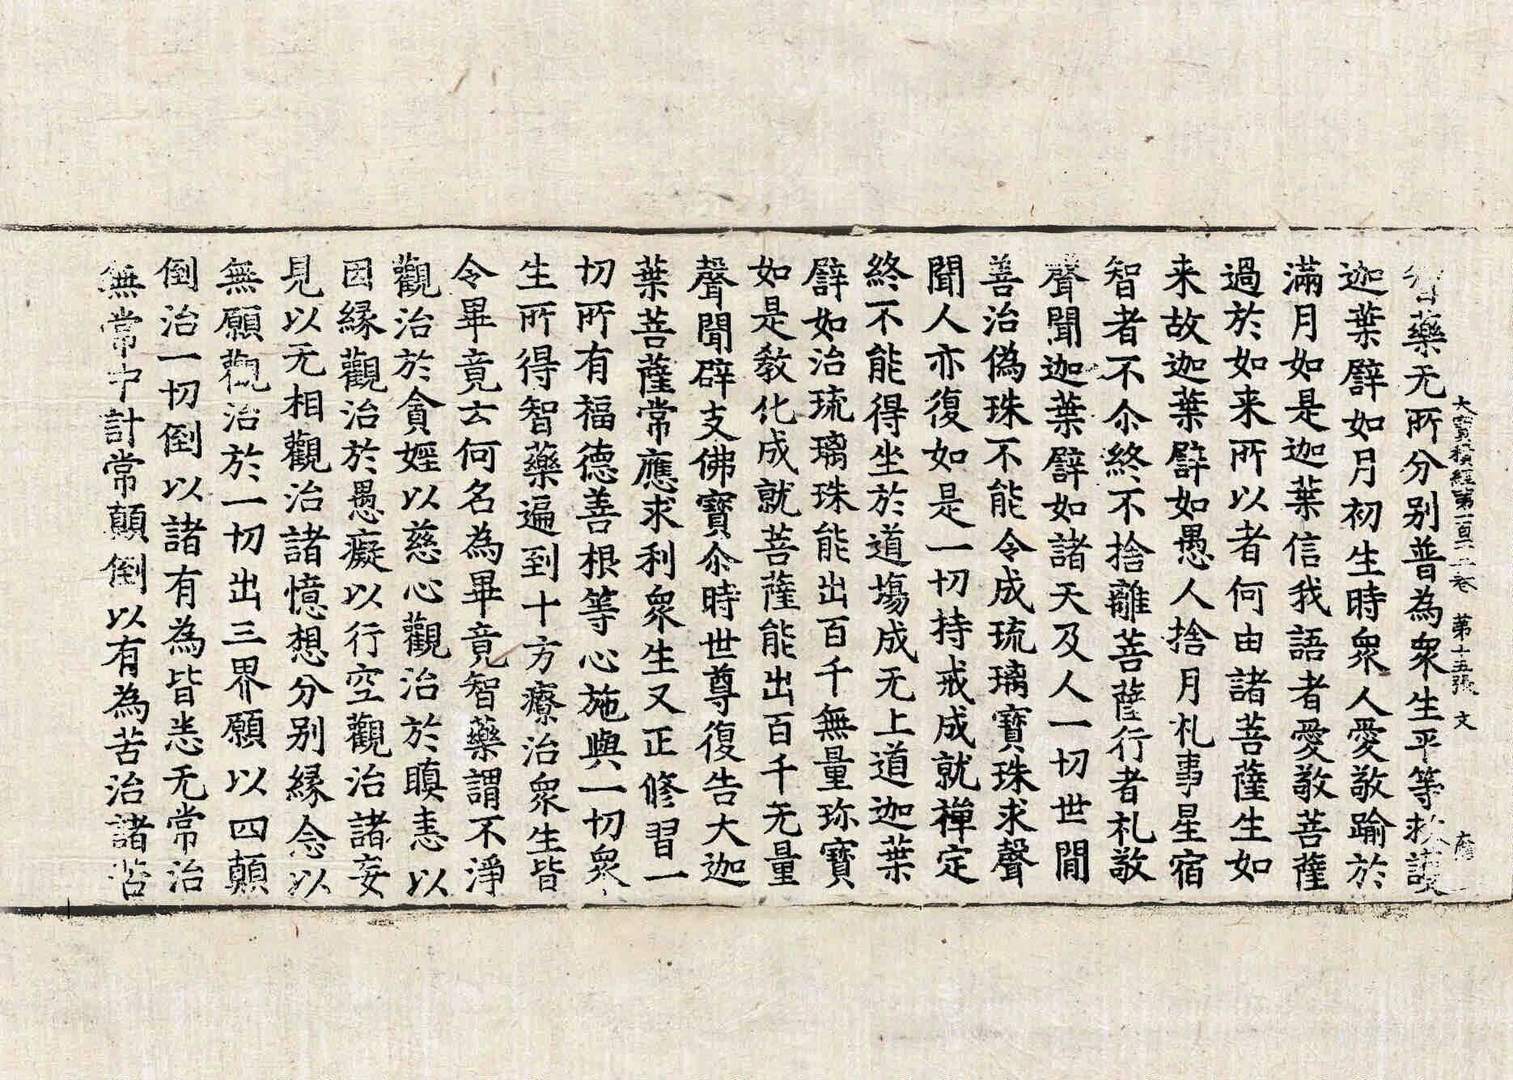 大寶積經第一百十二卷 第十五張 文
智藥无所分别普為衆生平等救護
迦葉譬如月初生時衆人愛敬踰於
滿月如是迦葉信我語者愛敬菩薩
過於如来所以者何由諸菩薩生如
来故迦葉譬如愚人捨月礼事星宿
智者不尒終不捨離菩薩行者礼敬
聲聞迦葉譬如諸天及人一切世間
善治偽珠不能令成琉璃寶珠求聲
聞人亦復如是一切持戒成就禪定
終不能得坐於道場成无上道迦葉
譬如治琉璃珠能出百千無量珎寶
如是教化成就菩薩能出百千无量
聲聞辟支佛寶尒時世尊復告大迦
葉菩薩常應求利衆生又正修習一
切所有福德善根等心施與一切衆
生所得智藥遍到十方療治衆生皆
令畢竟云何名為畢竟智藥謂不淨
觀治於貪婬以慈心觀治於瞋恚以
因縁觀治於愚癡以行空觀治諸妄
見以无相觀治諸憶想分别縁念以
無願觀治於一切出三界願以四顛
倒治一切倒以諸有為皆悉无常治
無常中計常顛倒以有為苦治諸苦